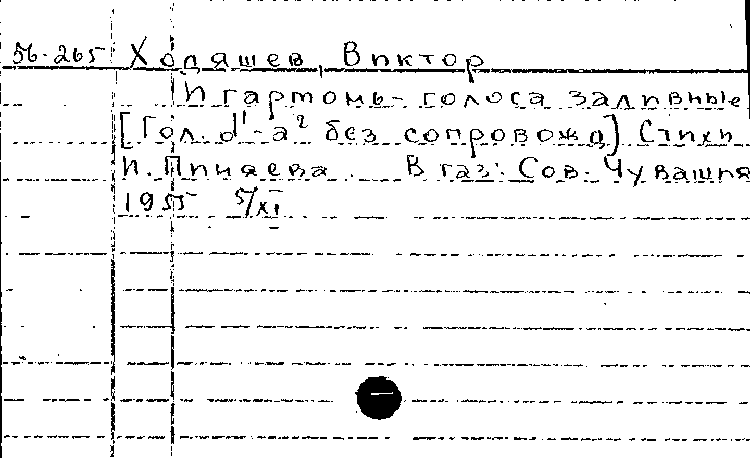 56-265 Ходяшев, Виктор
И гармонь-голоса заливные
[Гол. d¹-a² без сопровожд] Стихи
И. Пиняева. В газ: Сов. Чувашия
1955 5/XI